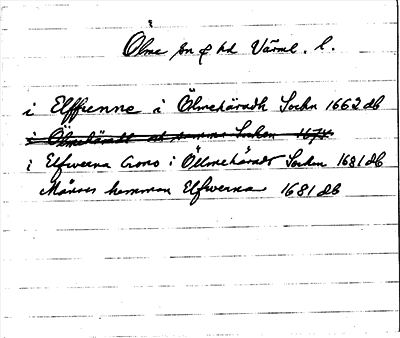 Ölme sn o hd Värml. l.
i Elffrenne i Ölmehäradh Sochn 1662 db
i Ölmehäradt och samma Socken 1674
i Elfwerna Crono i Öllmehäradt Socken 1681 db
hemman Elfwerna 1681 db